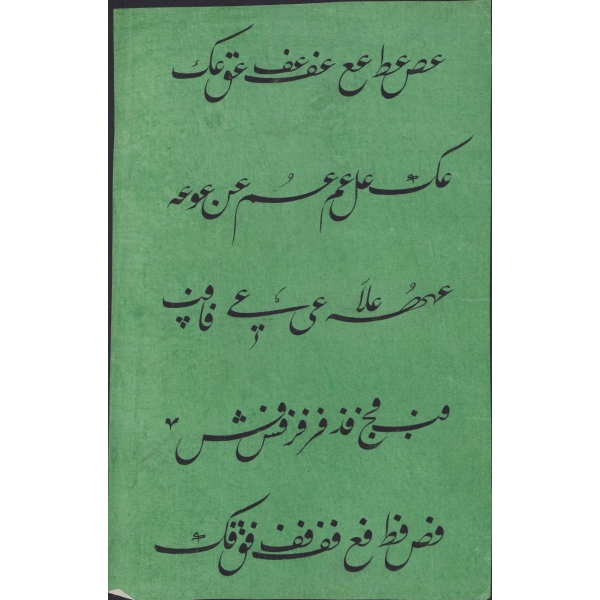 عص عط عع عف عف عق عك
عك عل عم عم عن عو عه
عه علا عى عے فا فب
فب فج فد فر فز فس فش
فص فط فع فف فف فق فك